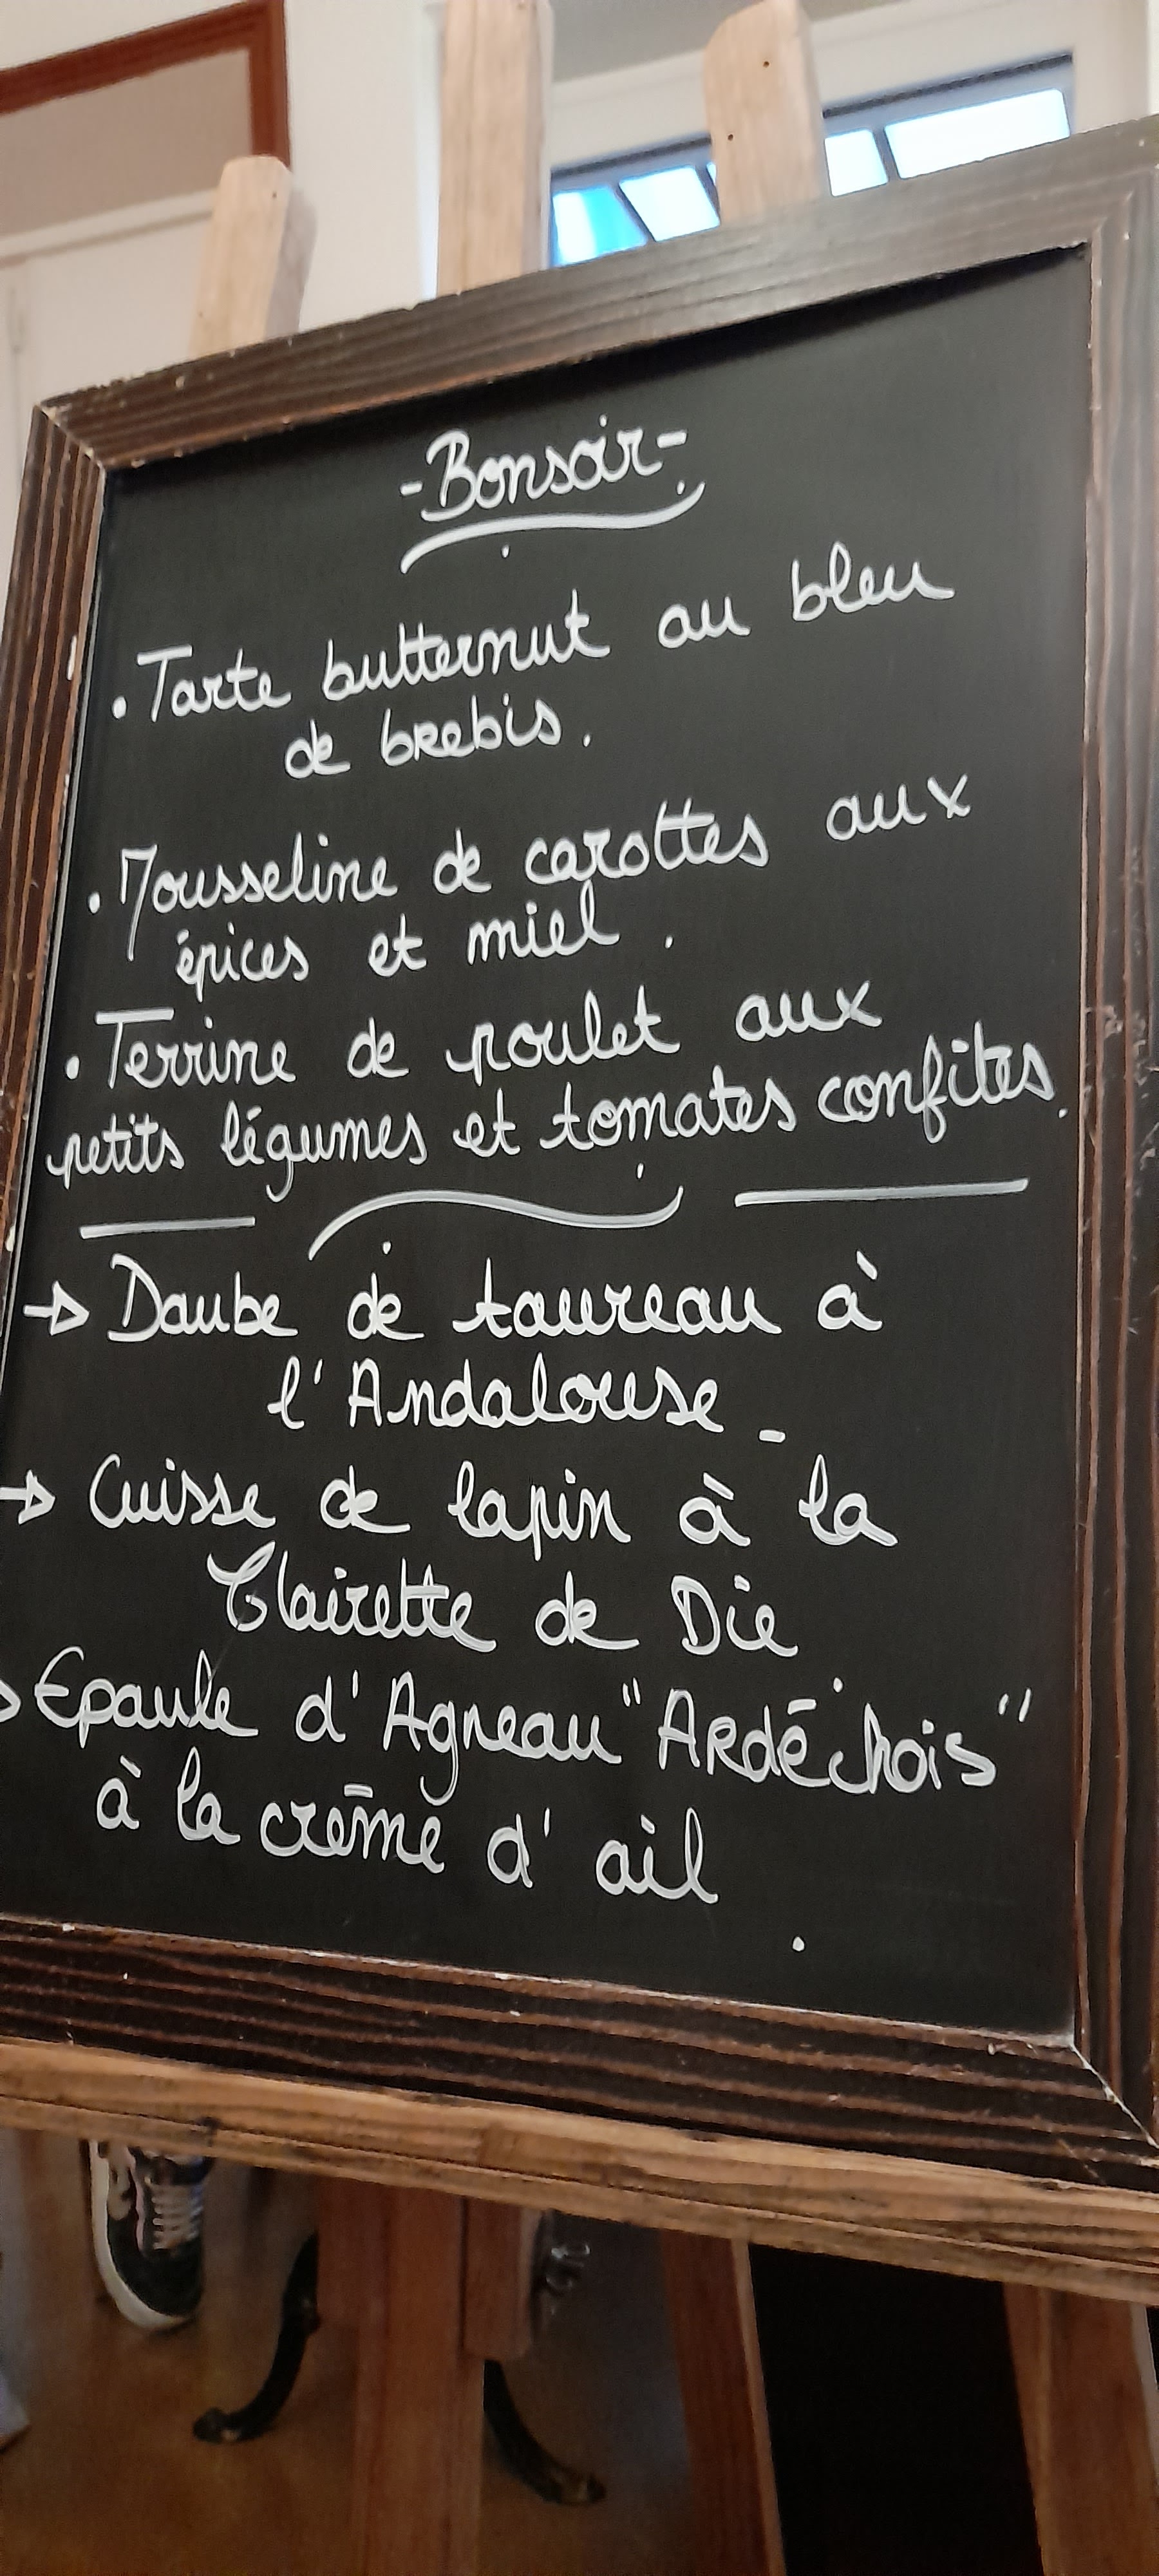 -Bonsoir-
. Tarte butternut au bleu
de brebis.
. Mousseline de carottes aux
épices et miel.
. Terrine de poulet aux
petits légumes et tomates confites.
→ Daube de taureau à
l'Andalouse_
→ Cuisse de lapin à la
Clairette de Die.
→ Epaule d'Agneau "Ardéchois"
à la crème d'ail.